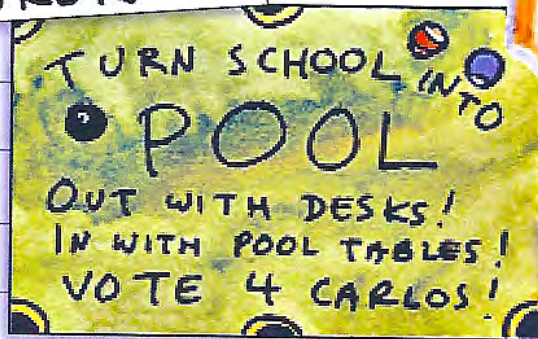 TURN SCHOOL INTO
POOL
OUT WITH DESKS!
IN WITH POOL TABLES!
VOTE 4 CARLOS!